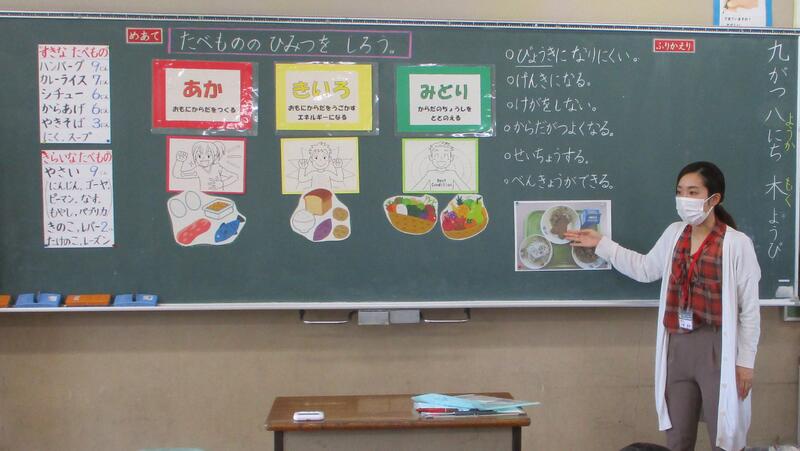 めあて
たべものの ひみつを しろう。
すきな たべもの
ハンバーグ 9にん
カレーライス 7にん
シチュー 6にん
からあげ 6にん
やきそば 3にん
にく、スープ
きらいな たべもの
やさい 9にん
にんじん、ゴーヤ、
ピーマン、なす、
もやし、パプリカ
きのこ、レバー2にん
たけのこ、レーズン
あか
おもにからだをつくる
きいろ
おもにからだをうごかす
エネルギーになる
みどり
からだのちょうしを
ととのえる
Best
Condition
○びょうきに なりにくい。
○げんきになる。
○けがをしない。
○からだがつよくなる。
○せいちょうする。
○べんきょうができる。
ふりかえり
九がつ 八にち 木ようび
ようか
もく